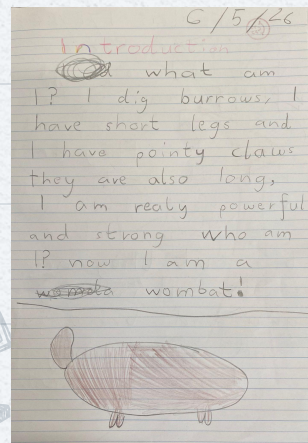 6/5/26
Introduction
what am
I? I dig burrows, I
have short legs and
I have pointy claws
they are also long,
I am realy powerful
and strong who am
I? now I am a
wombat!